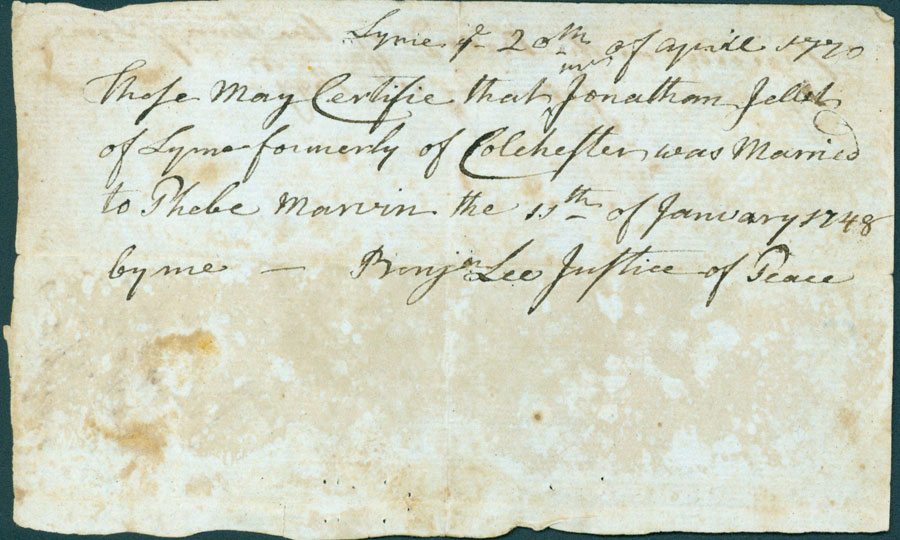 Lyme ye 20th of Aprill 1770
These May Certifie that mr Jonathan Jellet
of Lyme formerly of Colchester was Married
to Phebe Marvin the 11th of January 1748
by me — Benjn Lee Justice of Peace